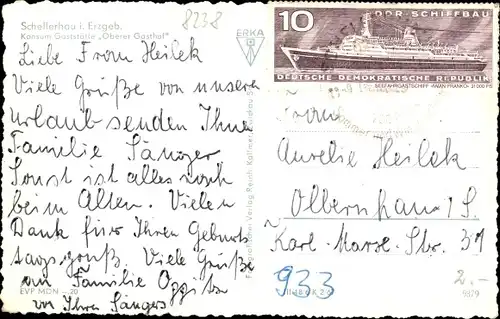 Schellerhau i. Erzgeb.
Konsum Gaststätte „Oberer Gasthof“
8238
ERKA
Liebe Frau Heilek
Viele Grüße von unseren
Urlaub senden Ihnen
Familie Sänger
Sonst ist alles noch
beim Alten. Vielen
Dank für Ihren Geburts
tagsgruß. Viele Grüße
an Familie Oppitz
von Ihren Sängers
EVP MDN -.20
10
DDR-SCHIFFBAU
DEUTSCHE DEMOKRATISCHE REPUBLIK
SEEFAHRGASTSCHIFF »IWAN FRANKO« 21 000 PS
Frau
Aurelie Heilek
Olbernhau / S.
Karl-Marx-Str. 31
933
2.-
9379